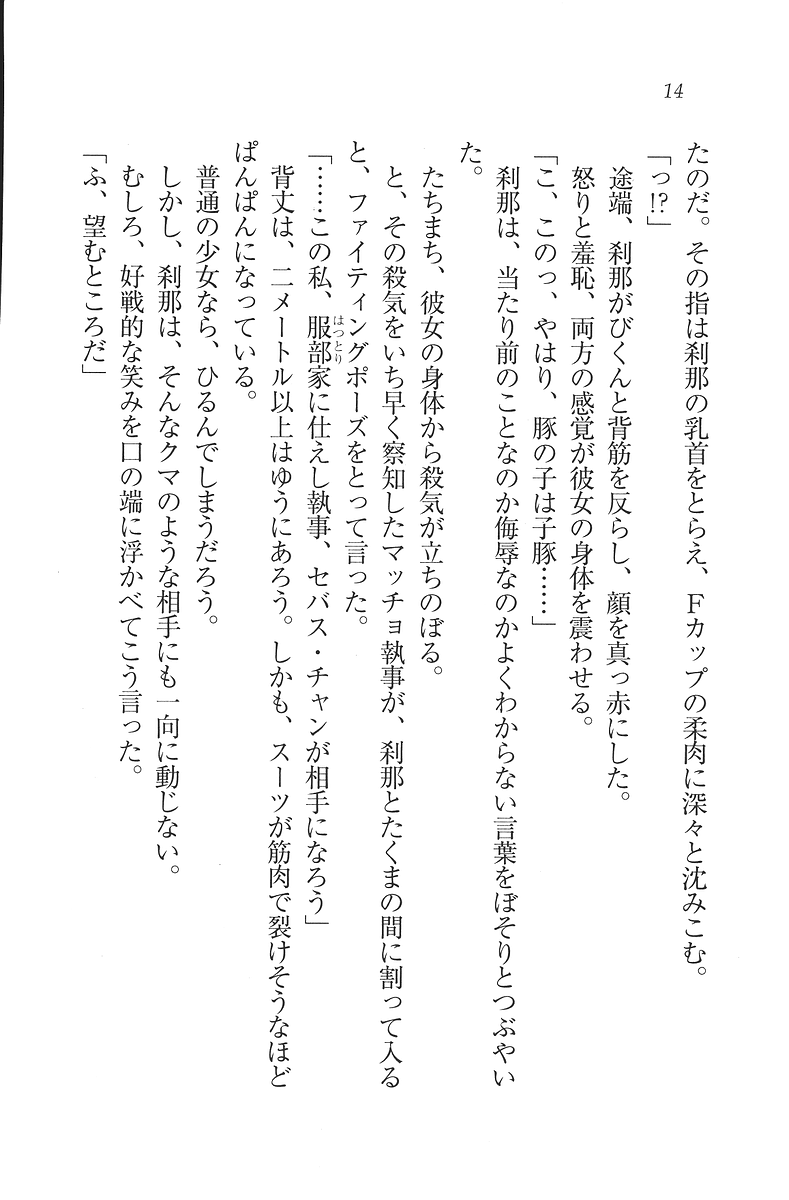 14
たのだ。その指は刹那の乳首をとらえ、Fカップの柔肉に深々と沈みこむ。
「っ!?」
途端、刹那がびくんと背筋を反らし、顔を真っ赤にした。
怒りと羞恥、両方の感覚が彼女の身体を震わせる。
「こ、このっ、やはり、豚の子は子豚……」
刹那は、当たり前のことなのか侮辱なのかよくわからない言葉をぼそりとつぶやい
た。
たちまち、彼女の身体から殺気が立ちのぼる。
と、その殺気をいち早く察知したマッチョ執事が、刹那とたくまの間に割って入る
と、ファイティングポーズをとって言った。
「……この私、服部家に仕えし執事、セバス・チャンが相手になろう」
はっとり
背丈は、二メートル以上はゆうにあろう。しかも、スーツが筋肉で裂けそうなほど
ぱんぱんになっている。
普通の少女なら、ひるんでしまうだろう。
しかし、刹那は、そんなクマのような相手にも一向に動じない。
むしろ、好戦的な笑みを口の端に浮かべてこう言った。
「ふ、望むところだ」